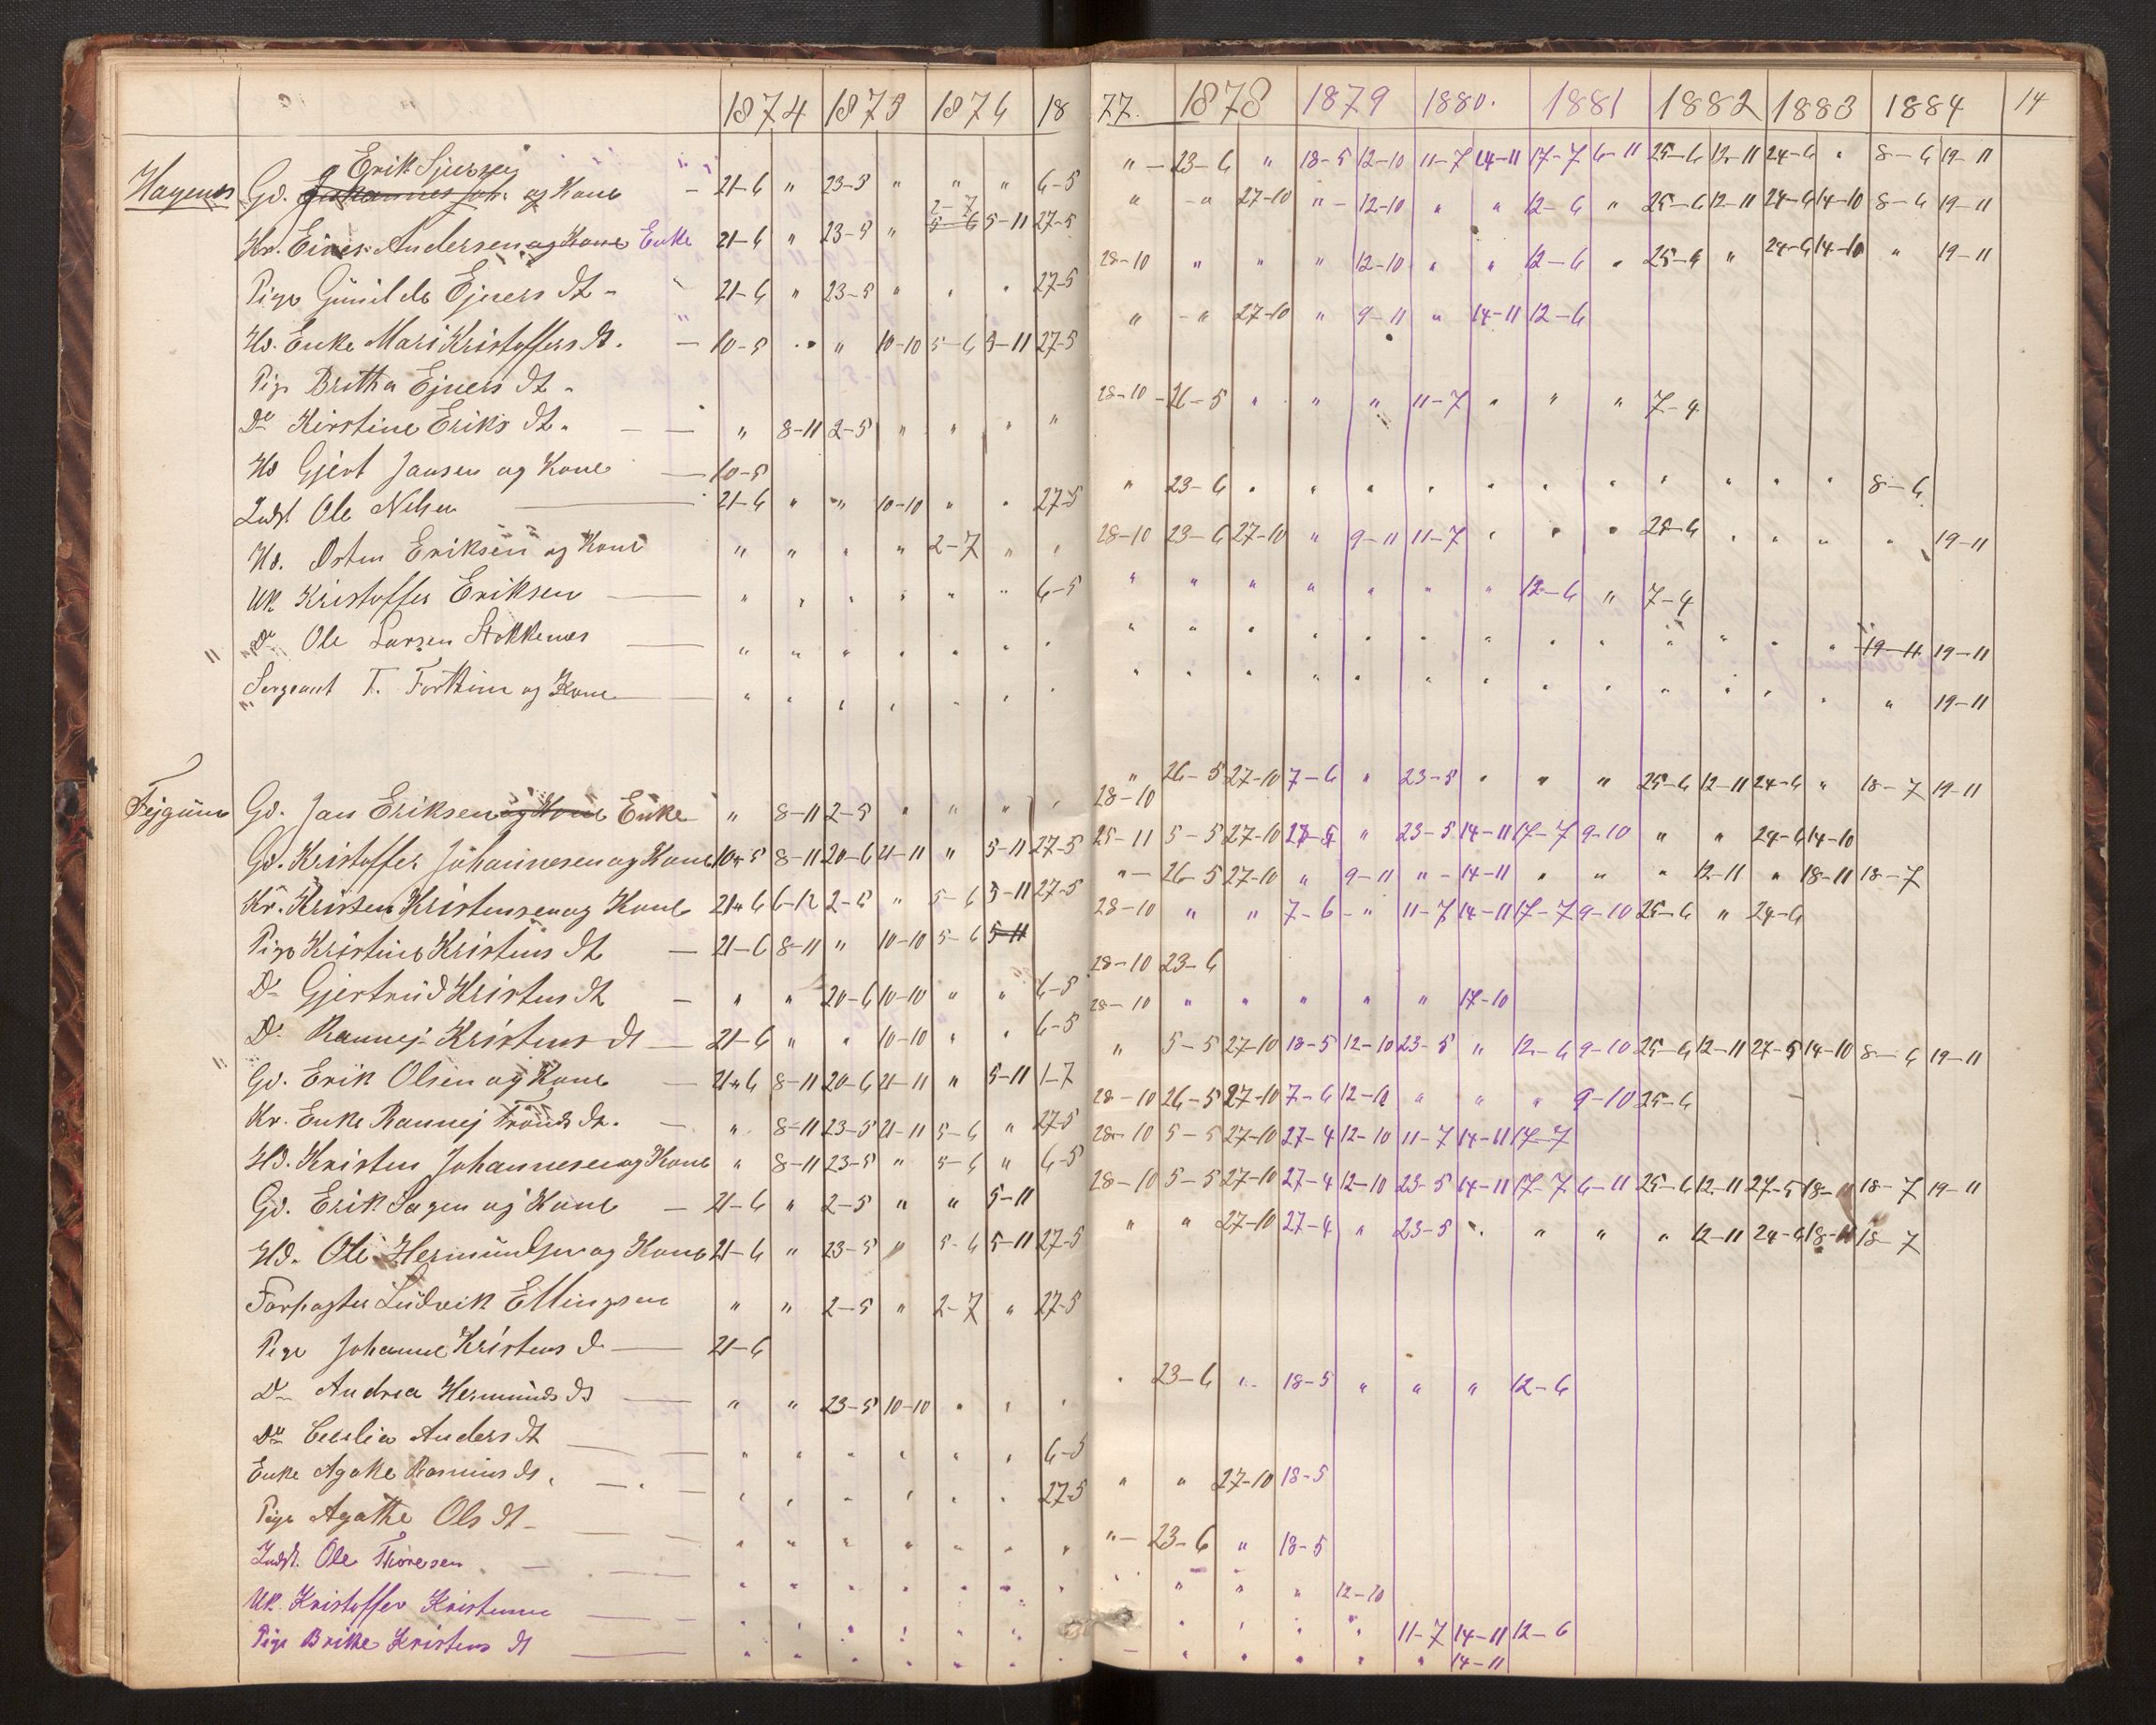 1874 1875 1876 1877. 1878 1879 1880. 1881 1882 1883 1884 14
Erik Sjursen
Hagenes Gd. Johannes Joh. og Kone – 21–6 " 23–5 " " " 6–5 " – 23–6 " 18–5 12–10 11–7 14–11 17–7 6–11 25–6 12–11 24–6 " 8–6 19–11
2–7
Kr. Einer Andersen og Kone Enke 21–6 " 23–5 " 5–6 5–11 27–5 " –" 27–10 " – 12–10 " " 12–6 " 25–6 12–11 24–6 14–10 8–6 19–11
Pige Gunilde Ejners dt – " 21–6 " 23–5 " " " 27–5 28–10 " " " 12–10 " " 12–6 " 25–6 " 24–6 14–10 " 19–11
Hd. Enke Mari Kristoffers dt. – 10–5 " " 10–10 5–6 5–11 27–5 " –" 27–10 " 9–11 " 14–11 12–6
Pige Britha Ejners dt –
Do Kirstine Eriks dt. – – " 8–11 2–5 " " " " 28–10 –26–5 " " " 11–7 " " " 7–4
Hd Gjert Jansen og Kone – 10–5
Indst Ole Nilsen – 21–6 " " 10–10 " " 27–5 " 23–6 " " " " " " " " " " " 8–6
Hd. Østen Eriksen og Kone " " " " 2–7 " " 28–10 23–6 27–10 " 9–11 11–7 " " " 25–6 " " " " 19–11
UK Kristoffer Eriksen – " " " " " " 6–5 " " " " " " " 12–6 " 7–4
" Do Ole Larsen Stokkenes – " " " " " " " " " " " " " " " " " " " " 19–11 19–11
Sergeant T. Forthun og Kone – " " " " " " " " " " " " " " " " " " " " " 19–11
Fejgum Gd. Jan Eriksen og Kone Enke " 8–11 2–5 " " " " " 28–10 26–5 27–10 7–6 " 23–5 " " " 25–6 12–11 24–6 " 18–7 19–11
Gd. Kristoffer Johannesen og Kone 10–5 8–11 20–6 21–11 " 5–11 27–5 25–11 5–5 27–10 " 23–5 14–11 17–7 9–10 " " 24–6 14–10
Kr. Kristen Kristensen og Kone 21–6 6–12 2–5 " 5–6 5–11 27–5 " – 26–5 27–10 " 9–11 " – 14–11 " " " 12–11 " 18–11 18–7
Pige Kristine Kristens dt – 21–6 8–11 " 10–10 5–6 5–11 28–10 " " 7–6 –" 11–7 14–11 17–7 9–10 25–6 " 24–6
Do Gjertrud Kristens dt – " " 20–6 10–10 " " 6–5 28–10 23–6
Do Rannej Kristens dt – 21–6 " " 10–10 " " 6–5 28–10 " " " " " 17–10
" Gd. Erik Olsen og Kone – 21–6 8–11 20–6 21–11 " 5–11 1–7 " 5–5 27–10 18–5 12–10 23–5 " 12–6 9–10 25–6 12–11 27–5 14–10 8–6 19–11
Kr. Enke Rannej Tronds dt. – " 8–11 23–5 21–11 5–6 " 27–5 28–10 26–5 27–10 7–6 12–10 " " " 9–10 25–6
Hd. Kristen Johannesen og Kone " 8–11 23–5 " 5–6 " 6–5 28–10 5–5 27–10 27–4 12–10 11–7 14–11 17–7
Gd. Erik Sagen og Kone – 21–6 " 2–5 " " 5–11 28–10 5–5 27–10 27–4 12–10 23–5 14–11 17–7 6–11 25–6 12–11 27–5 18–11 18–7 19–11
Hd. Ole Hermundsen og Kone 21–6 " 23–5 " 5–6 5–11 27–5 " " 27–10 27–4 " 23–5 " " " " 12–11 24–6 18–11 18–7
Forpagter Ludvik Ellingsen " " 2–5 " 2–7 " 27–5
Pige Johanne Kristens d – 21–6
Do Andrea Hermunds dt – " " 23–5 10–10 " " " " 23–6 " 18–5 " " " 12–6
Do Cecilia Anders dt – – " " " " " " 6–5
Enke Agate Rasmus dt. – – " " " " " " 27–5 " " 27–10 18–5
Pige Agathe Ols dt – – – " " " " " " " " – 23–6 " 18–5
Indst. Ole Thoresen – – " " " " " " " " " " " 12–10
UK. Kristoffer Kristensen – – " " " " " " " " " " " 11–7 14–11 12–6
Pige Brithe Kristens dt – " " " " " " " – " " " " " 14–11